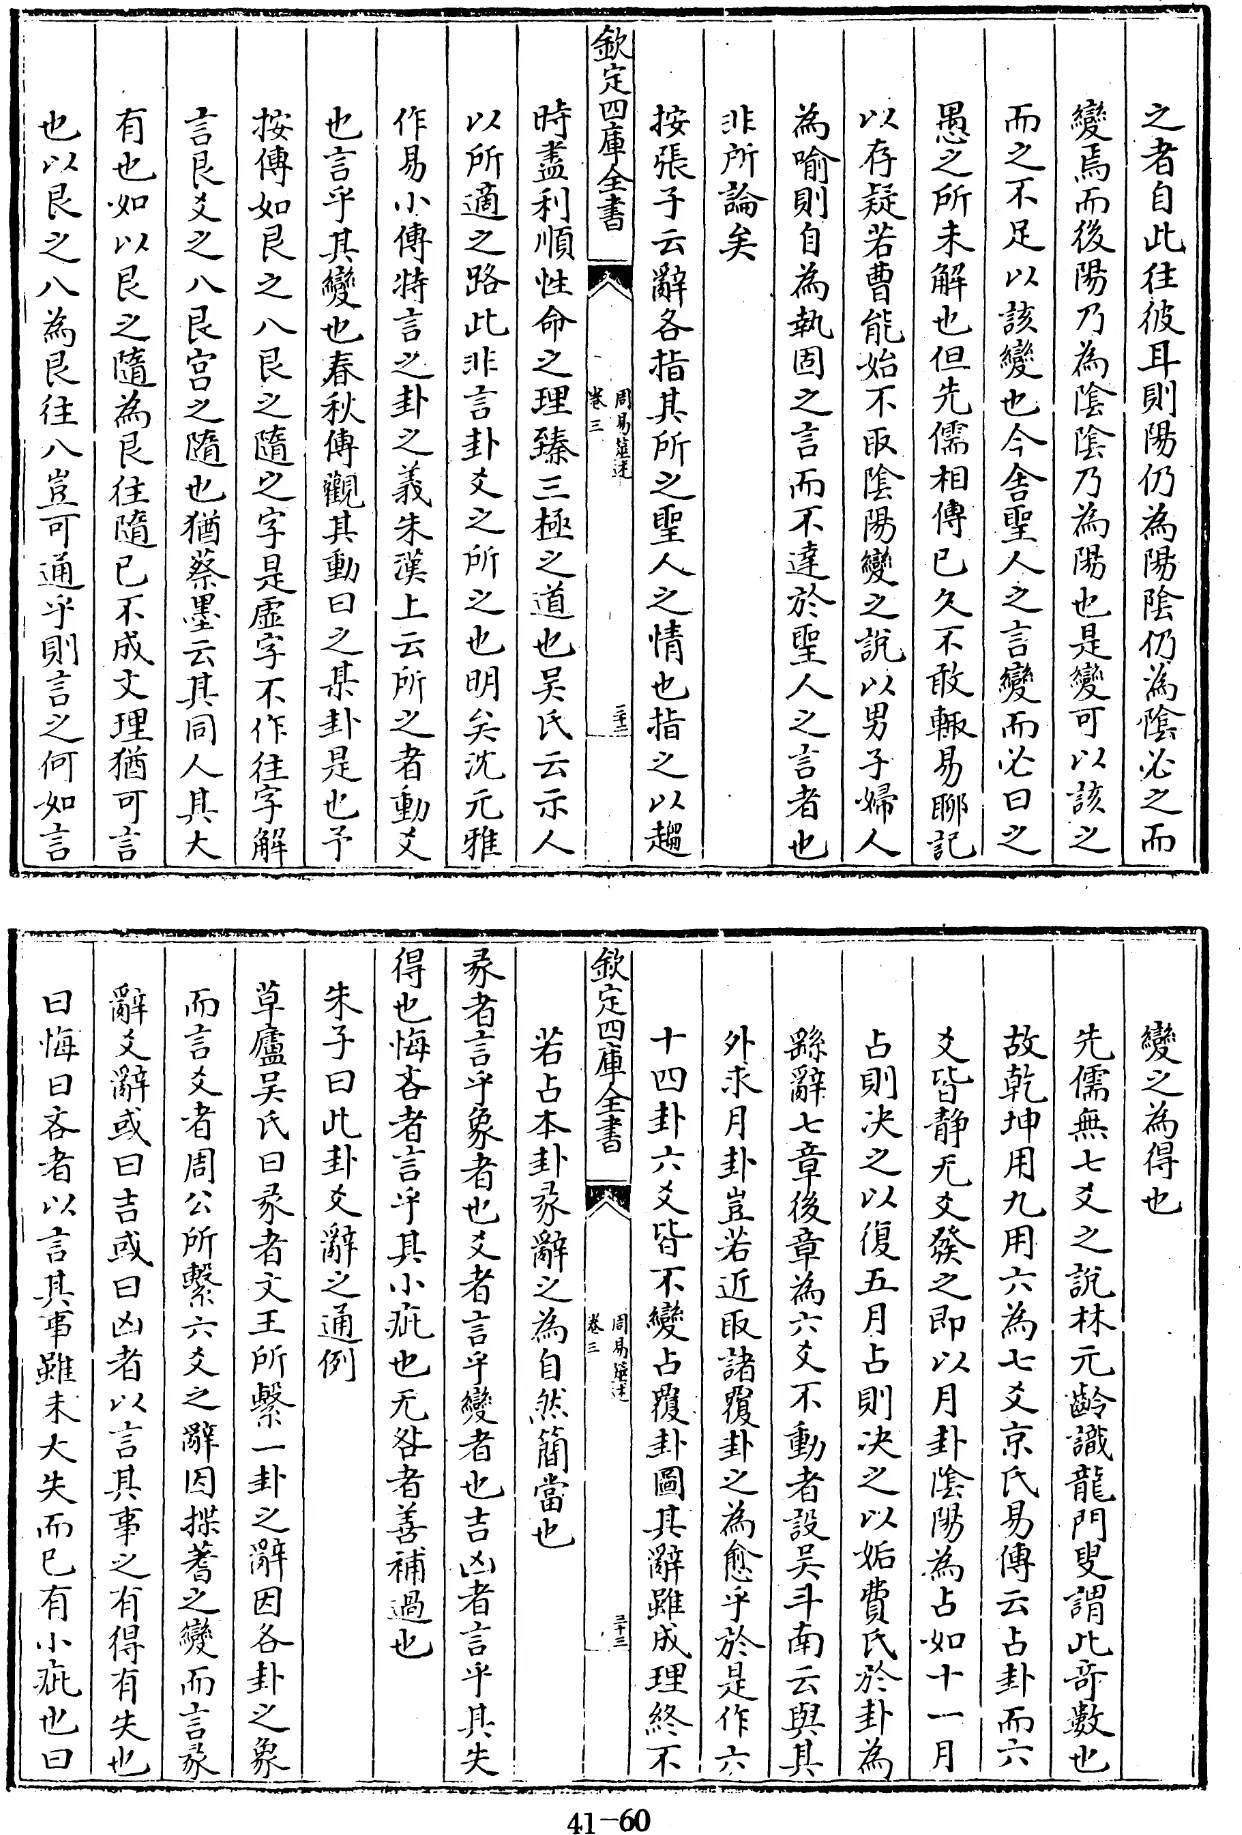 之者自此往彼耳則陽仍為陽陰仍為陰必之而
變焉而後陽乃為陰陰乃為陽也是變可以該之
而之不足以該變也今舎聖人之言變而必曰之
愚之所未解也但先儒相傳已久不敢輙易聊記
以存疑若曹能始不取陰陽變之説以男子婦人
為喻則自為執固之言而不達於聖人之言者也
非所論矣
按張子云辭各指其所之聖人之情也指之以趨
欽定四庫全書
周易筮述
卷三
三十二
時盡利順性命之理臻三極之道也吴氏云示人
以所適之路此非言卦爻之所之也明矣沈元雅
作易小傳特言之卦之義朱漢上云所之者動爻
也言乎其變也春秋傳觀其動曰之某卦是也予
按傳如艮之八艮之隨之字是虛字不作往字解
言艮爻之八艮宫之隨也猶蔡墨云其同人其大
有也如以艮之隨為艮往隨已不成文理猶可言
也以艮之八為艮往八豈可通乎則言之何如言
變之為得也
先儒無七爻之説林元齡識龍門叟謂此奇數也
故乾坤用九用六為七爻京氏易傳云占卦而六
爻皆靜无爻發之即以月卦陰陽為占如十一月
占則決之以復五月占則決之以姤費氏於卦為
繇辭七章後章為六爻不動者設吴斗南云與其
外求月卦豈若近取諸覆卦之為愈乎於是作六
十四卦六爻皆不變占覆卦圖其辭雖成理終不
欽定四庫全書
周易筮述
卷三
三十三
若占本卦彖辭之為自然簡當也
彖者言乎象者也爻者言乎變者也吉凶者言乎其失
得也悔吝者言乎其小疵也无咎者善補過也
朱子曰此卦爻辭之通例
草廬吴氏曰彖者文王所繫一卦之辭因各卦之象
而言爻者周公所繫六爻之辭因揲蓍之變而言彖
辭爻辭或曰吉或曰凶者以言其事之有得有失也
曰悔曰吝者以言其事雖未大失而已有小疵也曰
41-60